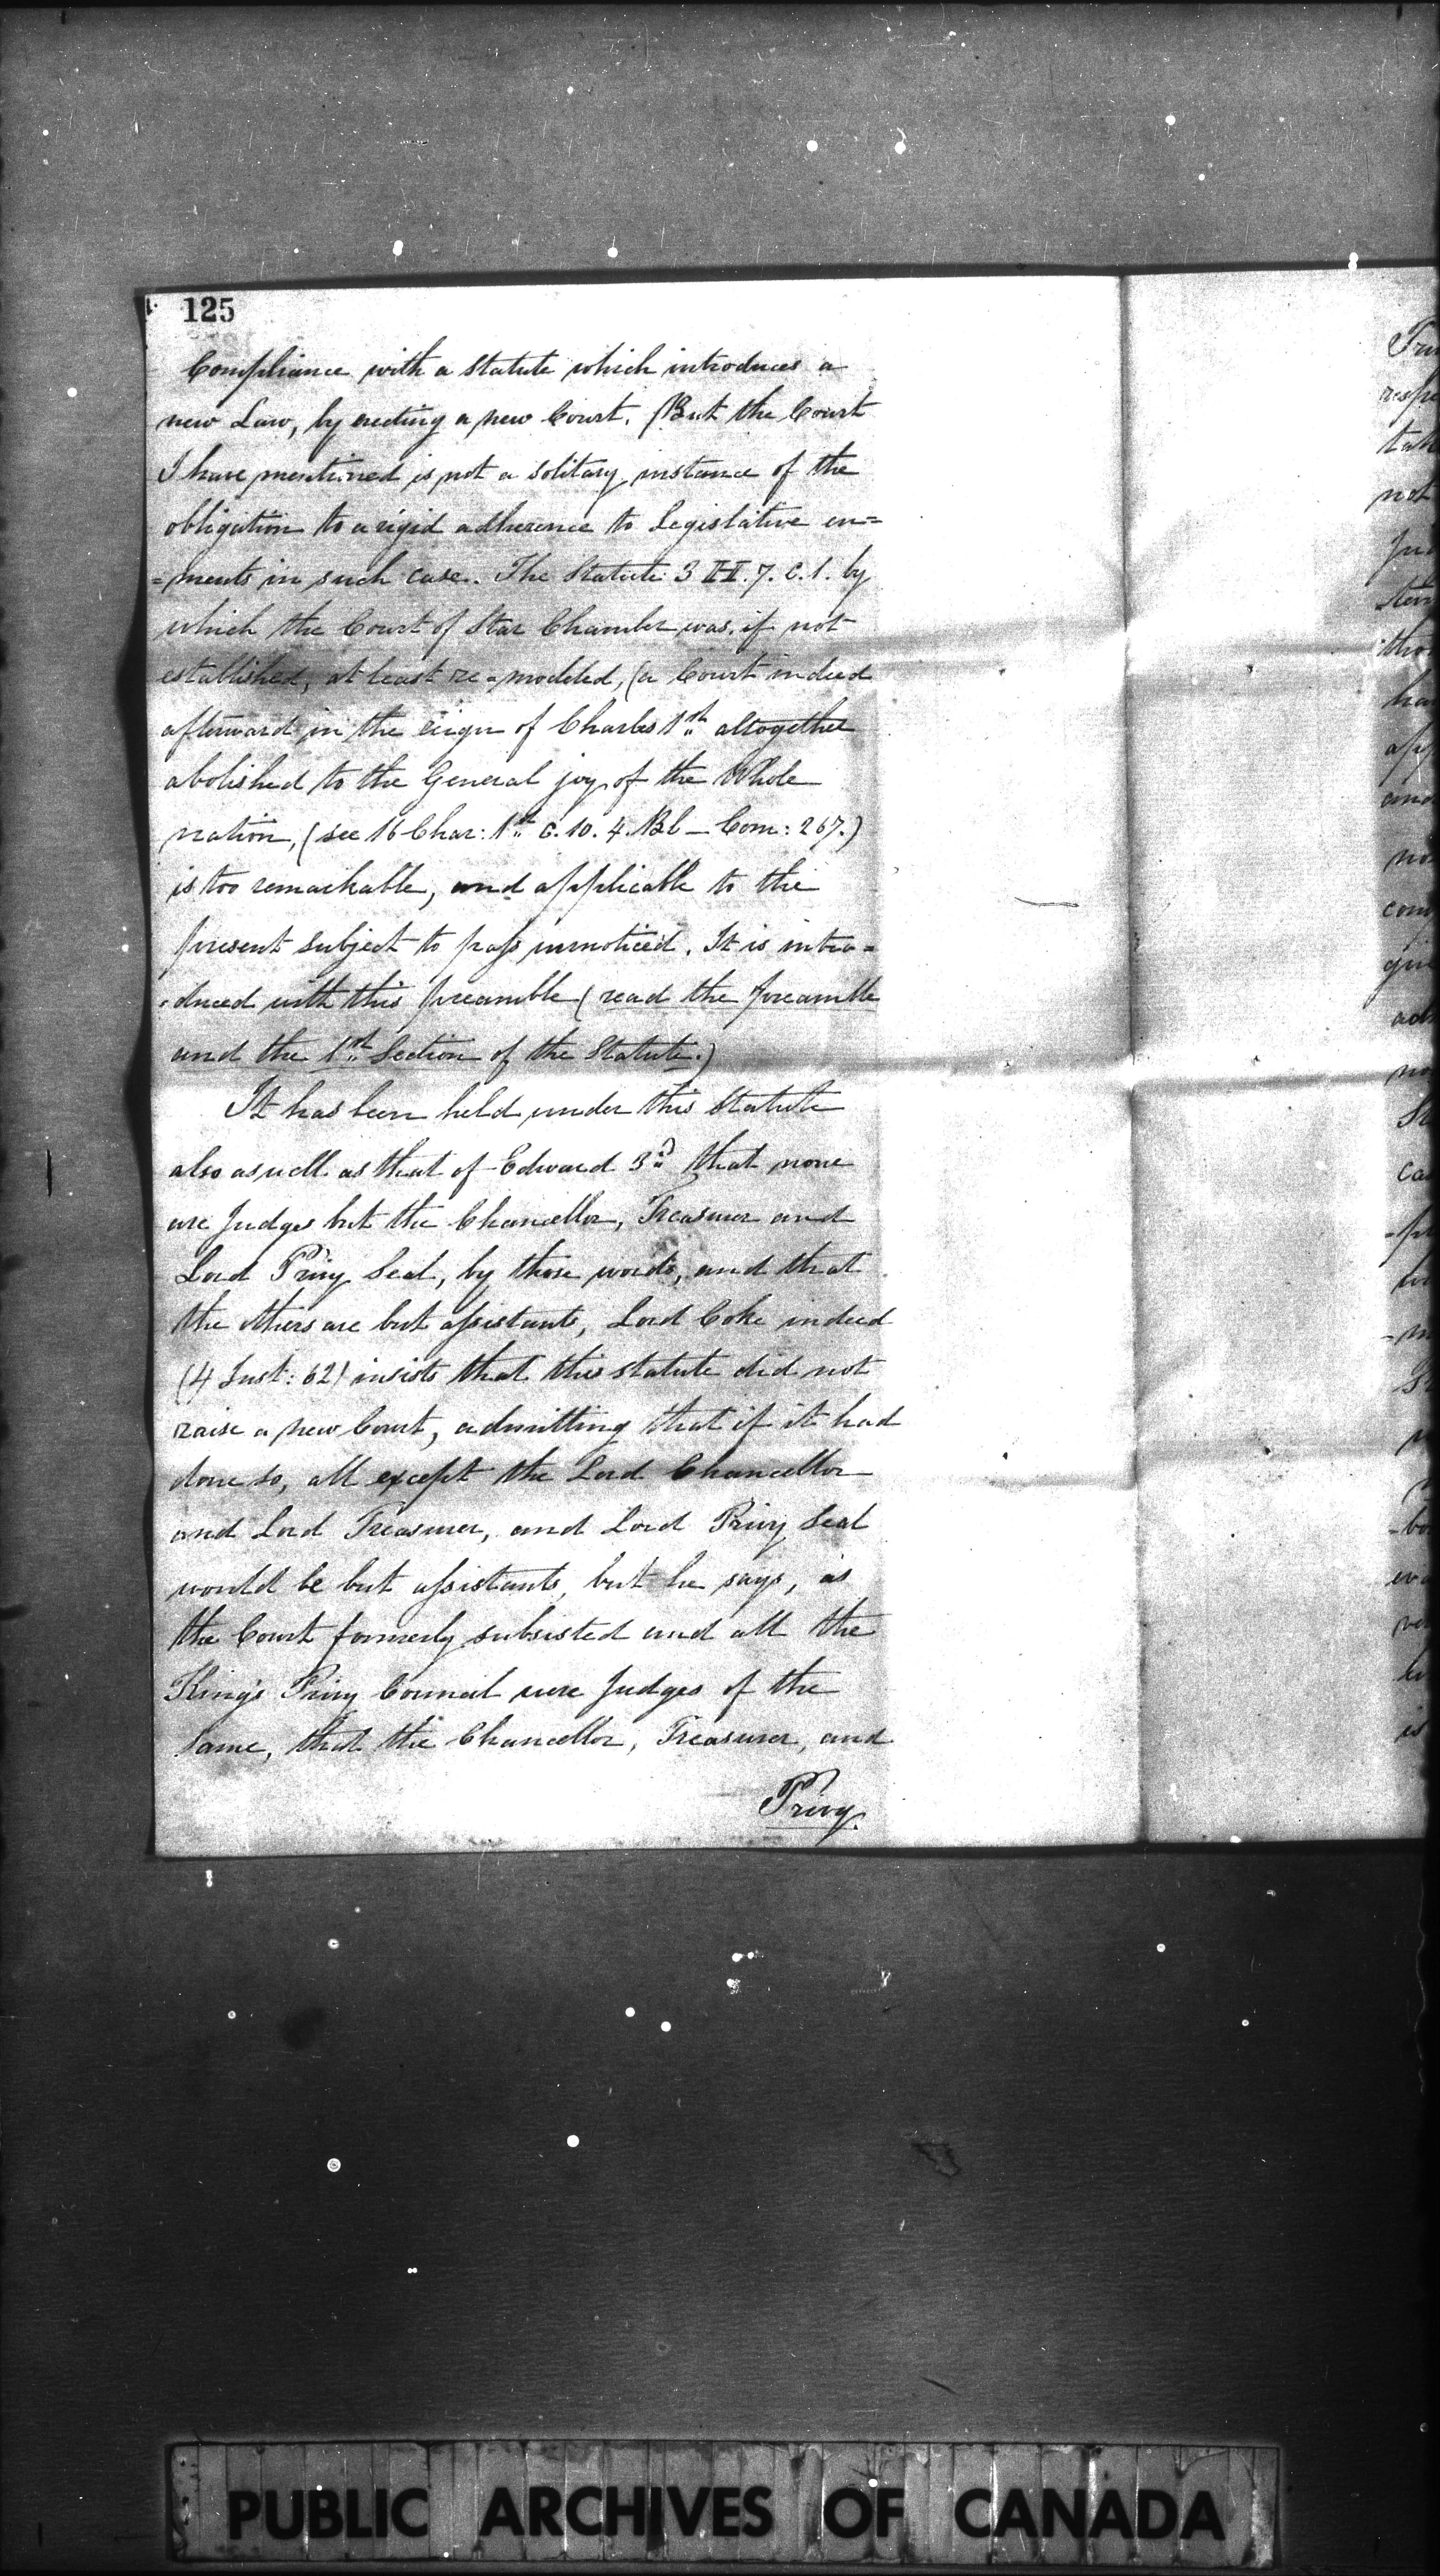 125
Compliance with a statute which introduces a
new Law, by erecting a new Court. But the Court
I have mentioned is not a solitary instance of the
obligation to a rigid adherence to Legislative en=
=ments in such case. The Statute 3 H. 7. C. 1. by
which the Court of Star Chamber was, if not
established, at least re-modeled, (a Court indeed
afterward in the reign of Charles 1st altogether
abolished to the General joy of the Whole
nation, (see 16 Char: 1st C. 10. 4. Bl - Com: 267.)
is too remarkable, and applicable to the
present subject to pass unnoticed. It is intro=
=duced with this preamble (read the preamble
and the 1st Section of the Statute.)
It has been held under this Statute
also as well as that of Edward 3d that none
are Judges but the Chancellor, Treasurer and
Lord Privy Seal, by those words, and that
the others are but assistants, Lord Coke indeed
(4 Inst: 62) insists that this statute did not
raise a new Court, admitting that if it had
done so, all except the Lord Chancellor
and Lord Treasurer, and Lord Privy Seal
would be but assistants, but he says, as
the Court formerly subsisted and all the
King's Privy Council were Judges of the
same, that the Chancellor, Treasurer, and
Privy
not
and
is
PUBLIC ARCHIVES OF CANADA